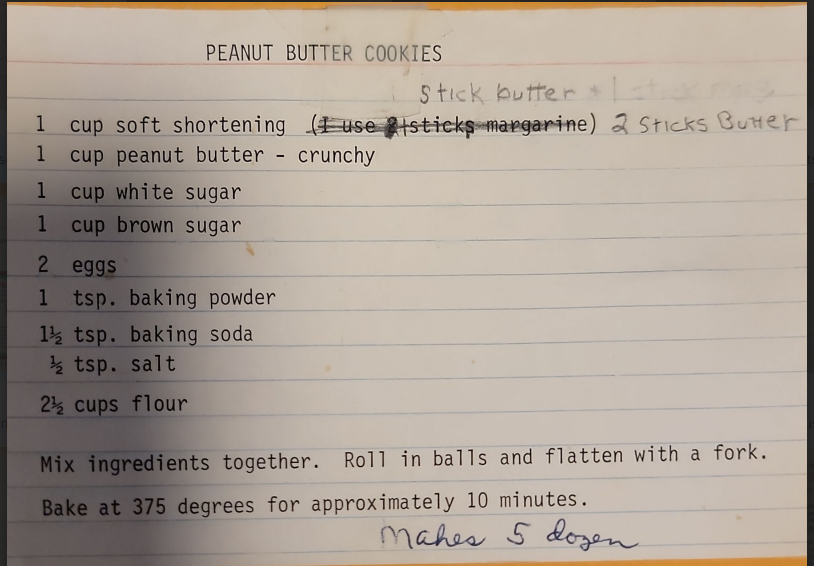 PEANUT BUTTER COOKIES
Stick butter
1 cup soft shortening (I use sticks margarine) 2 Sticks Butter
1 cup peanut butter - crunchy
1 cup white sugar
1 cup brown sugar
2 eggs
1 tsp. baking powder
1½ tsp. baking soda
½ tsp. salt
2½ cups flour
Mix ingredients together. Roll in balls and flatten with a fork.
Bake at 375 degrees for approximately 10 minutes.
Makes 5 dozen